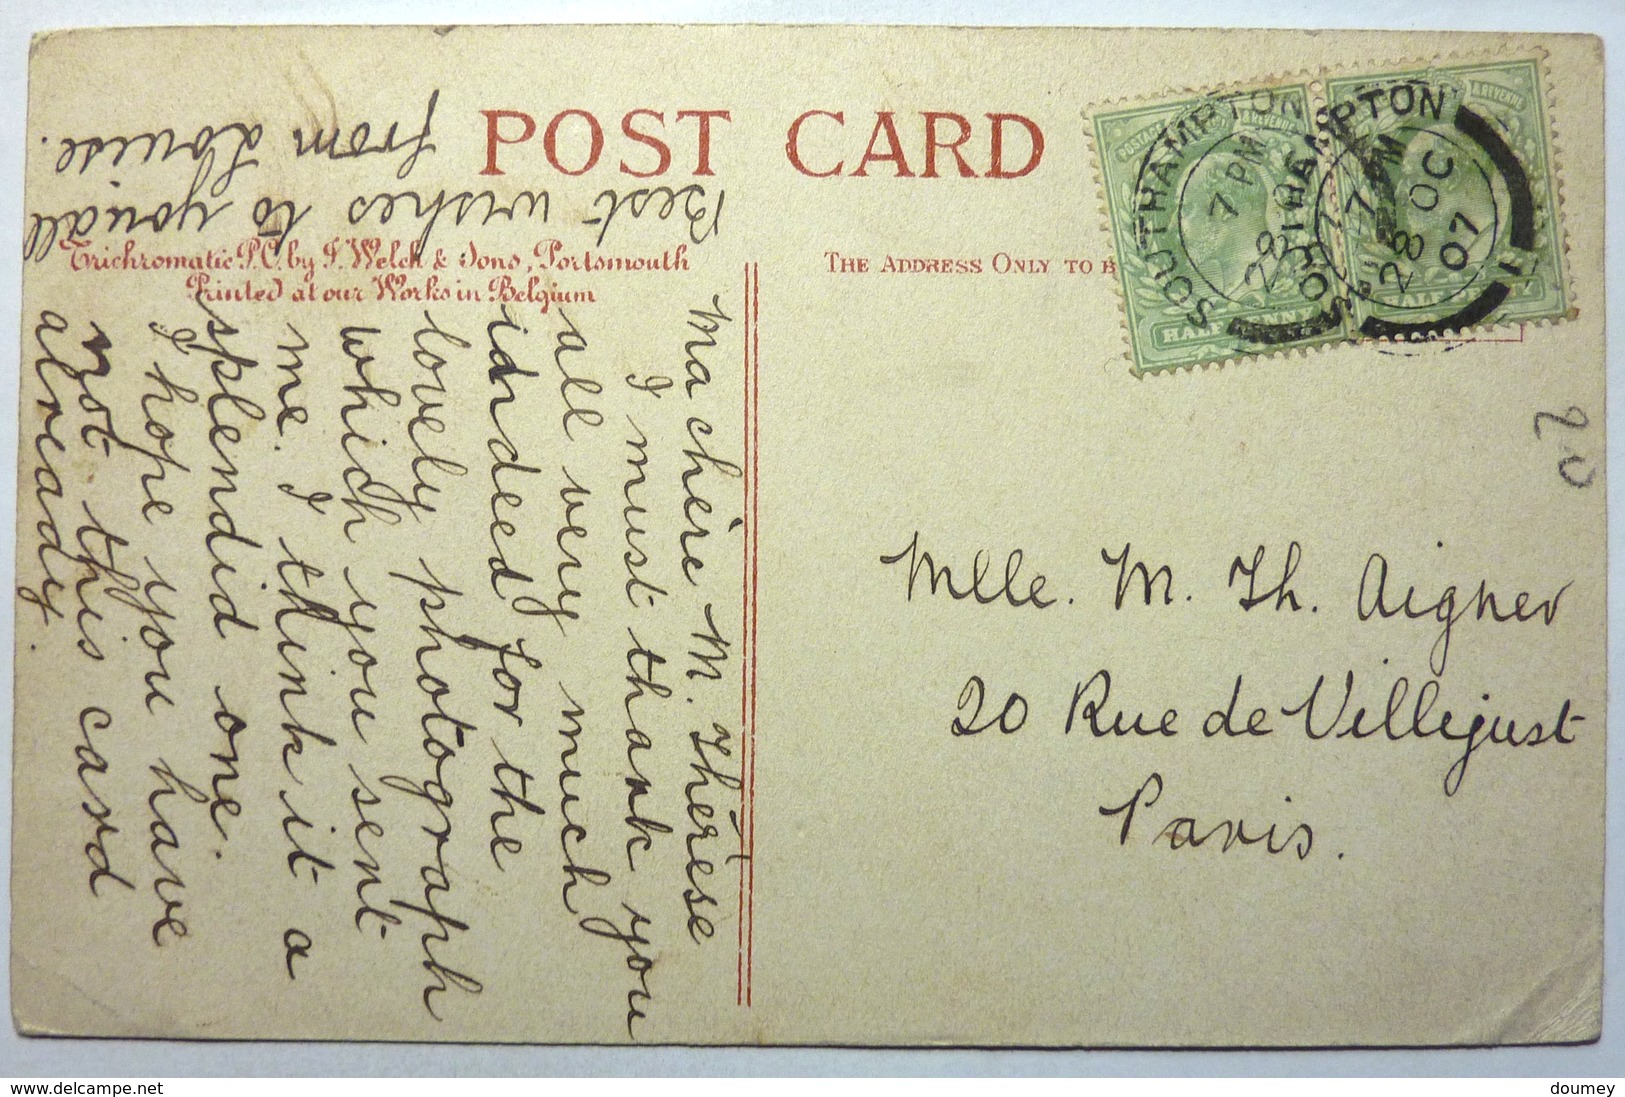 POST CARD
Trichromatic P.C. by J. Welch & Sons, Portsmouth
Printed at our Works in Belgium
THE ADDRESS ONLY TO B
Ma chère M. Thérèse
I must thank you
all very much
indndeed for the
lovely photograph
which you sent
me. I think it a
splendid one.
I hope you have
not this card
already.
Best wishes to you all
from Louise.
Mlle. M. Th. Aigner
20 Rue de Villejust
Paris.
20
SOUTHAMPTON
7 PM
28
SOUTHAMPTON
7 PM
28 OC
07
POSTAGE & REVENUE
HALFPENNY
& REVENUE
HALFPENNY
delcampe.net
doumey